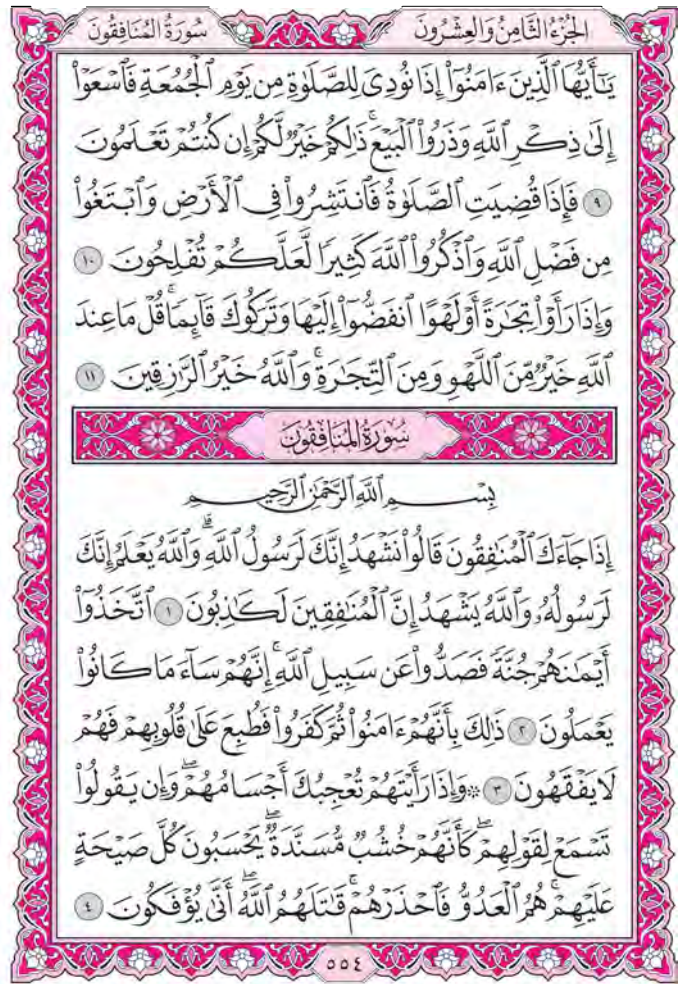 الجُزْءُ الثَّامِنُ وَالعِشْرُونَ
سُورَةُ المُنَافِقُونَ
يَـٰٓأَيُّهَا ٱلَّذِينَ ءَامَنُوٓاْ إِذَا نُودِيَ لِلصَّلَوٰةِ مِن يَوْمِ ٱلْجُمُعَةِ فَٱسْعَوْاْ
إِلَىٰ ذِكْرِ ٱللَّهِ وَذَرُواْ ٱلْبَيْعَۚ ذَٰلِكُمْ خَيْرٌ لَّكُمْ إِن كُنتُمْ تَعْلَمُونَ
٩ فَإِذَا قُضِيَتِ ٱلصَّلَوٰةُ فَٱنتَشِرُواْ فِي ٱلْأَرْضِ وَٱبْتَغُواْ
مِن فَضْلِ ٱللَّهِ وَٱذْكُرُواْ ٱللَّهَ كَثِيرًا لَّعَلَّكُمْ تُفْلِحُونَ ١٠
وَإِذَا رَأَوْاْ تِجَـٰرَةً أَوْ لَهْوًا ٱنفَضُّوٓاْ إِلَيْهَا وَتَرَكُوكَ قَآئِمًاۚ قُلْ مَا عِندَ
ٱللَّهِ خَيْرٌ مِّنَ ٱللَّهْوِ وَمِنَ ٱلتِّجَـٰرَةِۚ وَٱللَّهُ خَيْرُ ٱلرَّٰزِقِينَ ١١
سُورَةُ المُنَافِقُونَ
بِسْمِ ٱللَّهِ ٱلرَّحْمَـٰنِ ٱلرَّحِيمِ
إِذَا جَآءَكَ ٱلْمُنَـٰفِقُونَ قَالُواْ نَشْهَدُ إِنَّكَ لَرَسُولُ ٱللَّهِۗ وَٱللَّهُ يَعْلَمُ إِنَّكَ
لَرَسُولُهُۥ وَٱللَّهُ يَشْهَدُ إِنَّ ٱلْمُنَـٰفِقِينَ لَكَـٰذِبُونَ ١ ٱتَّخَذُوٓاْ
أَيْمَـٰنَهُمْ جُنَّةً فَصَدُّواْ عَن سَبِيلِ ٱللَّهِۚ إِنَّهُمْ سَآءَ مَا كَانُواْ
يَعْمَلُونَ ٢ ذَٰلِكَ بِأَنَّهُمْ ءَامَنُواْ ثُمَّ كَفَرُواْ فَطُبِعَ عَلَىٰ قُلُوبِهِمْ فَهُمْ
لَا يَفْقَهُونَ ٣ ۞وَإِذَا رَأَيْتَهُمْ تُعْجِبُكَ أَجْسَامُهُمْۖ وَإِن يَقُولُواْ
تَسْمَعْ لِقَوْلِهِمْۖ كَأَنَّهُمْ خُشُبٌ مُّسَنَّدَةٌۖ يَحْسَبُونَ كُلَّ صَيْحَةٍ
عَلَيْهِمْۚ هُمُ ٱلْعَدُوُّ فَٱحْذَرْهُمْۚ قَـٰتَلَهُمُ ٱللَّهُۖ أَنَّىٰ يُؤْفَكُونَ ٤
٥٥٤